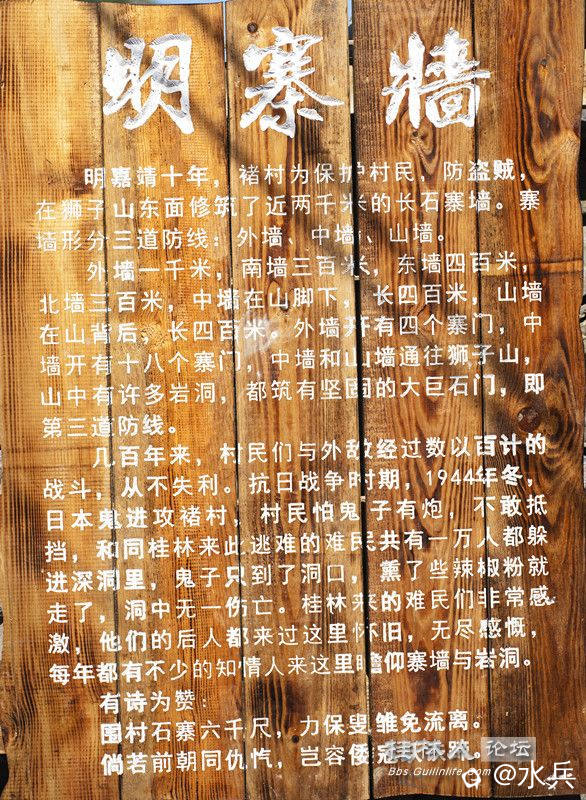 明寨墙
明嘉靖十年，褚村为保护村民，防盗贼，
在狮子山东面修筑了近两千米的长石寨墙。寨
墙形分三道防线：外墙、中墙、山墙。
外墙一千米，南墙三百米，东墙四百米，
北墙三百米，中墙在山脚下，长四百米，山墙
在山背后，长四百米。外墙开有四个寨门，中
墙开有十八个寨门，中墙和山墙通往狮子山，
山中有许多岩洞，都筑有坚固的大巨石门，即
第三道防线。
几百年来，村民们与外敌经过数以百计的
战斗，从不失利。抗日战争时期，1944年冬，
日本鬼进攻褚村，村民怕鬼子有炮，不敢抵
挡，和同桂林来此逃难的难民共有一万人都躲
进深洞里，鬼子只到了洞口，熏了些辣椒粉就
走了，洞中无一伤亡。桂林来的难民们非常感
激，他们的后人都来过这里怀旧，无尽感慨，
每年都有不少的知情人来这里瞻仰寨墙与岩洞。
有诗为赞：
围村石寨六千尺，力保叟雏免流离。
倘若前朝同仇忾，岂容倭寇
桂林人论坛
Bbs.Guilinlife.Com
@水兵